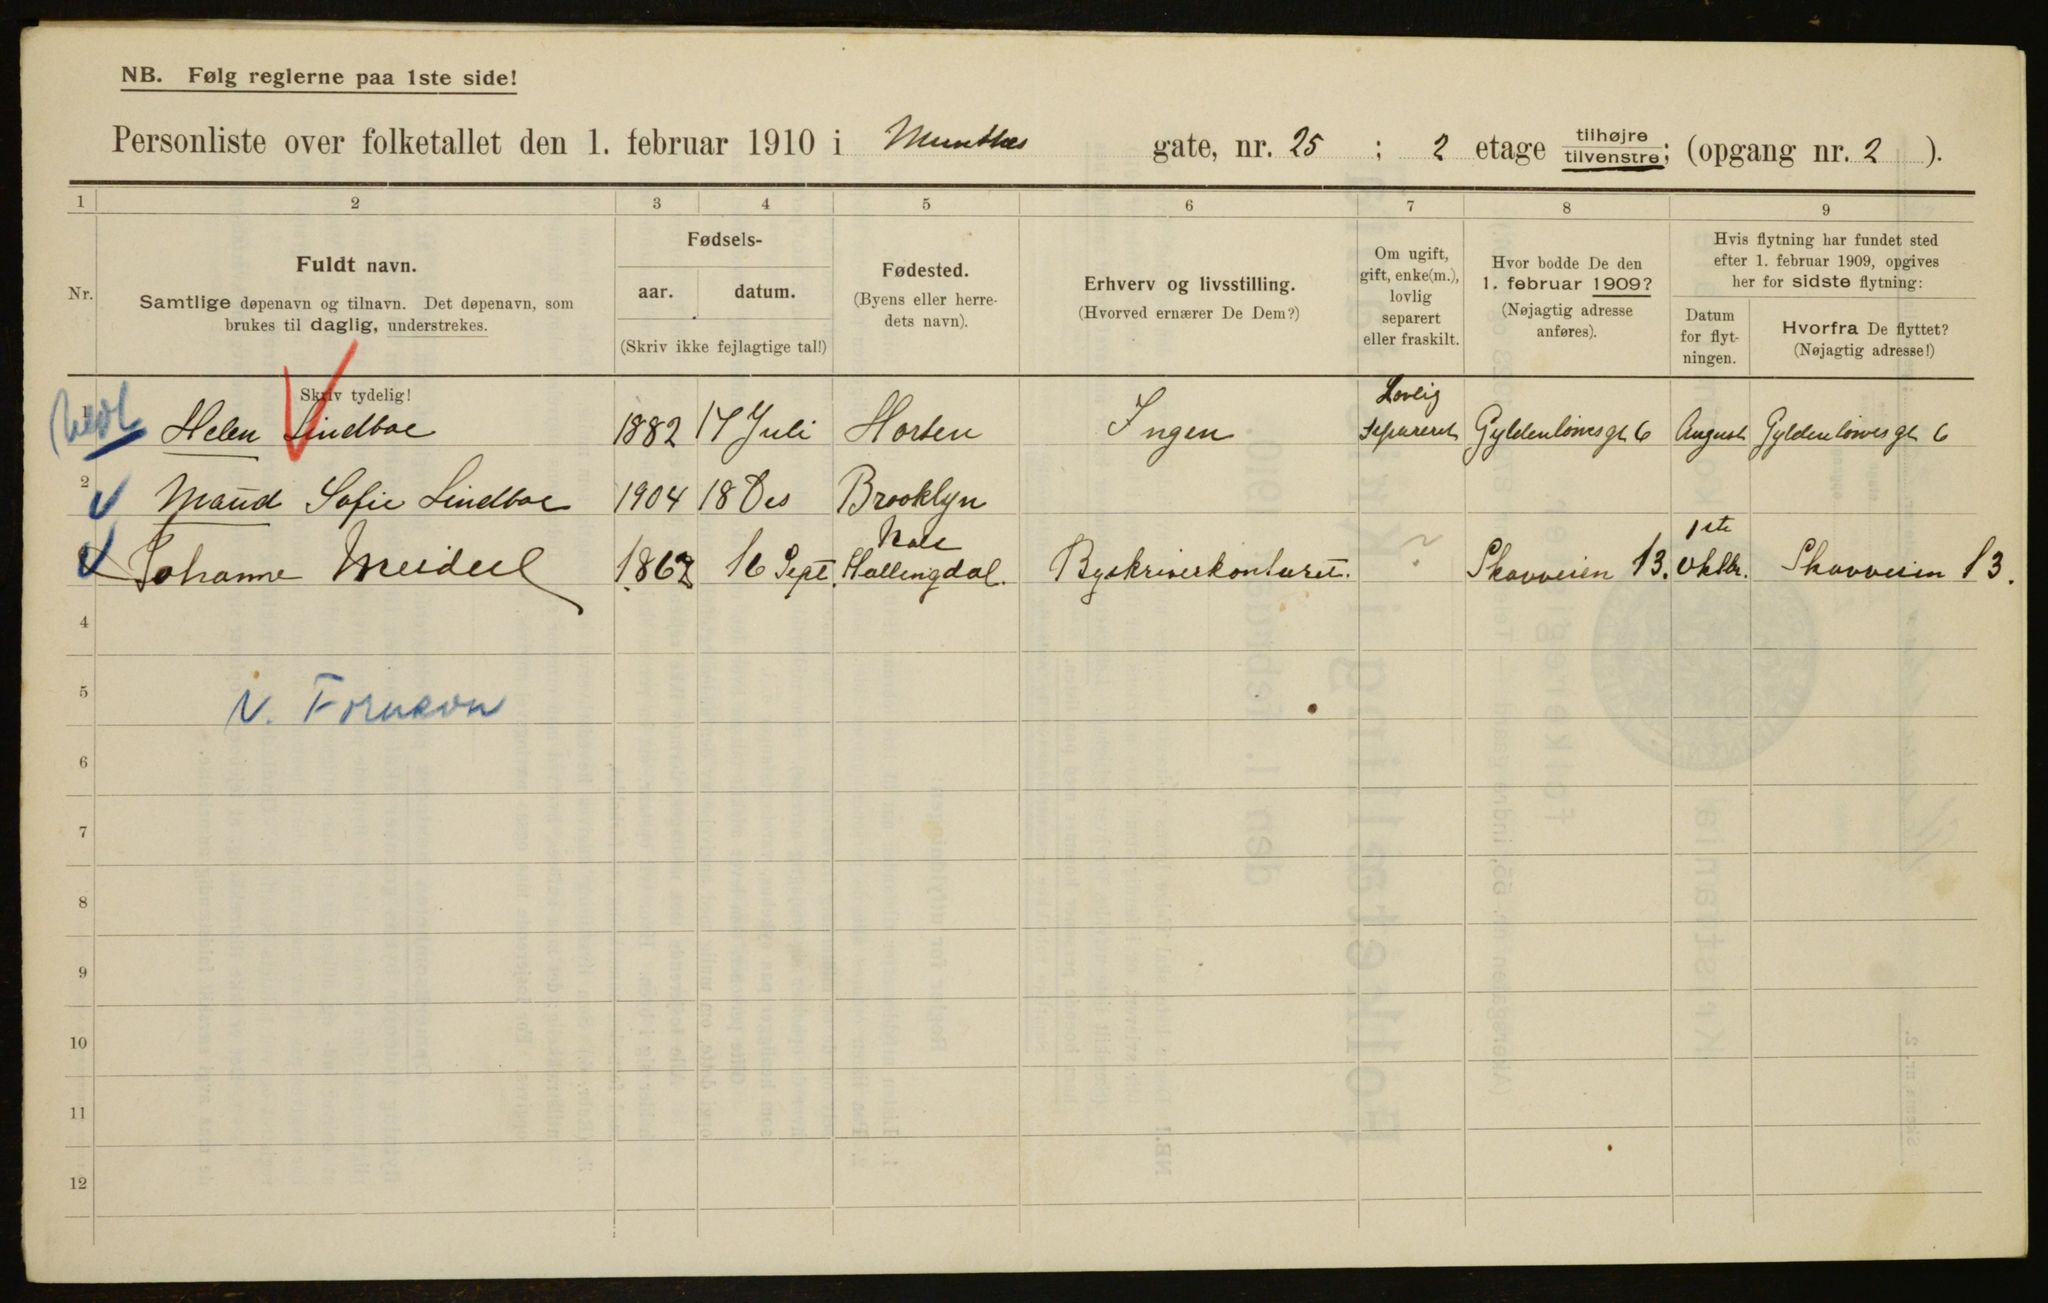 NB. Følg reglerne paa 1ste side!
Personliste over folketallet den 1. februar 1910 i Munthes gate, nr. 25 ; 2 etage tilhøjre tilvenstre; (opgang nr. 2 ).
1 2 3 4 5 6 7 8 9
Nr.
Fuldt navn.
Samtlige døpenavn og tilnavn. Det døpenavn, som
brukes til daglig, understrekes.
Skriv tydelig!
Fødsels-
aar. datum.
(Skriv ikke fejlagtige tal!)
Fødested.
(Byens eller herre-
dets navn).
Erhverv og livsstilling.
(Hvorved ernærer De Dem?)
Om ugift,
gift, enke(m.),
lovlig
separert
eller fraskilt.
Hvor bodde De den
1. februar 1909?
(Nøjagtig adresse
anføres).
Hvis flytning har fundet sted
efter 1. februar 1909, opgives
her for sidste flytning:
Datum
for flyt-
ningen.
Hvorfra De flyttet?
(Nøjagtig adresse!)
1 Helen Lindboe 1882 17 Juli Horten Ingen Lovlig Separeret Gyldenløvesgt 6 August Gyldenløvesgt 6
2 Maud Sofie Lindboe 1904 18 Des Brooklyn
Johanne Meidell 1867 16 Sept. Hallingdal. Byskriverkontoret. ? Skovveien 13. 1ste Oktbr. Skovveien 13.
4
5
N. Fornavn
6
7
8
9
10
11
12